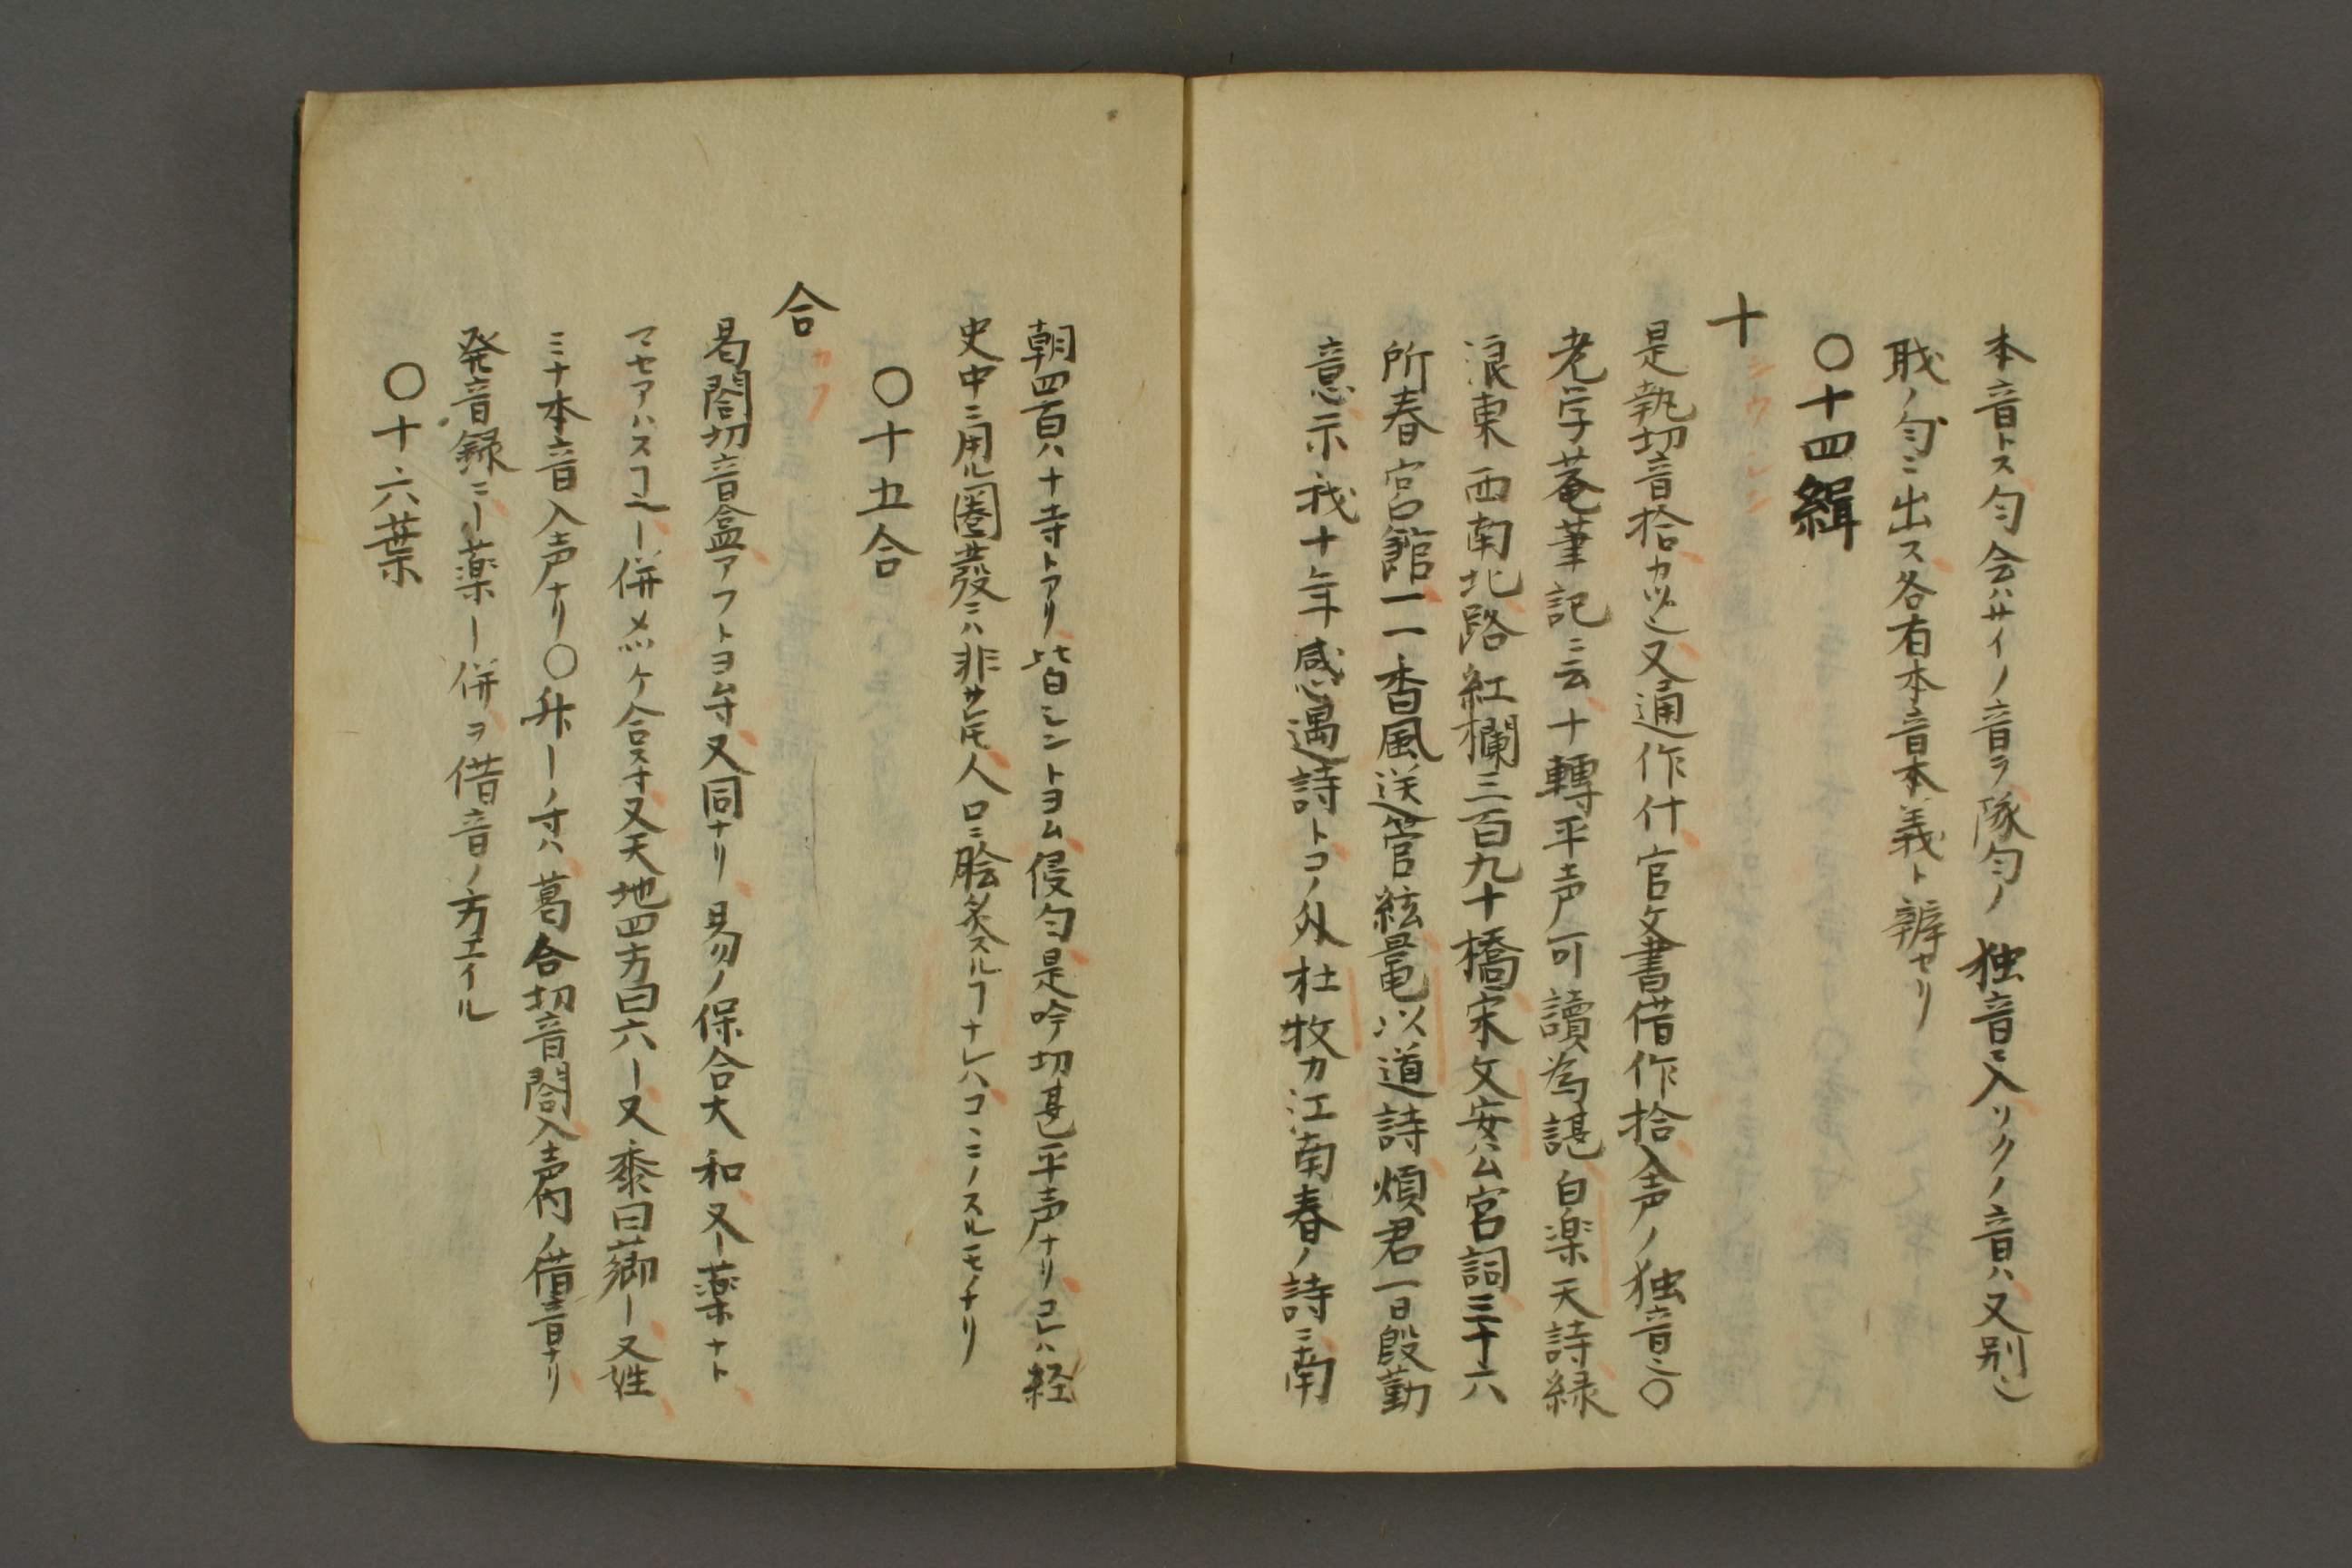 本音トス匀会ハサイノ音ヲ隊匀ノ独音ニ入リクノ音ハ又別也
職ノ匀ニ出ス各有本音本義ト辨セリ
〇十四緝
十
シウ シン
是執切音拾カツ也又通作什官文書借作拾入声ノ独音也〇
老学菴筆記ニ云十轉平声可讀為諶白楽天詩緑
浪東西南北路紅欄三百九十橋宋文安公宮詞三十六
所春宮館一一香風送管絃鼂以道詩煩君一日殷勤
意示我十年感遇詩トコノ外杜牧カ江南春ノ詩ニ南
朝四百八十寺トアリ皆シントヨム侵匀是吟切甚平声ナリコレハ経
史中ニ用ル圏發ニハ非サレ𪜈人口ニ膾炙スルヿナレハコヽニノスルモノナリ
〇十五合
合
曷閤切音盒アフトヨム寸又同ナリ易ノ保合大和又ー薬ナト
マセアハスヿ也ー併メツケ合ス寸又天地四方曰六ー又黍曰薌ー又姓
ミナ本音入声ナリ〇升ーノ寸ハ葛合切音閤入声内ノ借音ナリ
発音録ニー薬ー併ヲ借音ノ方エイル
〇十六葉